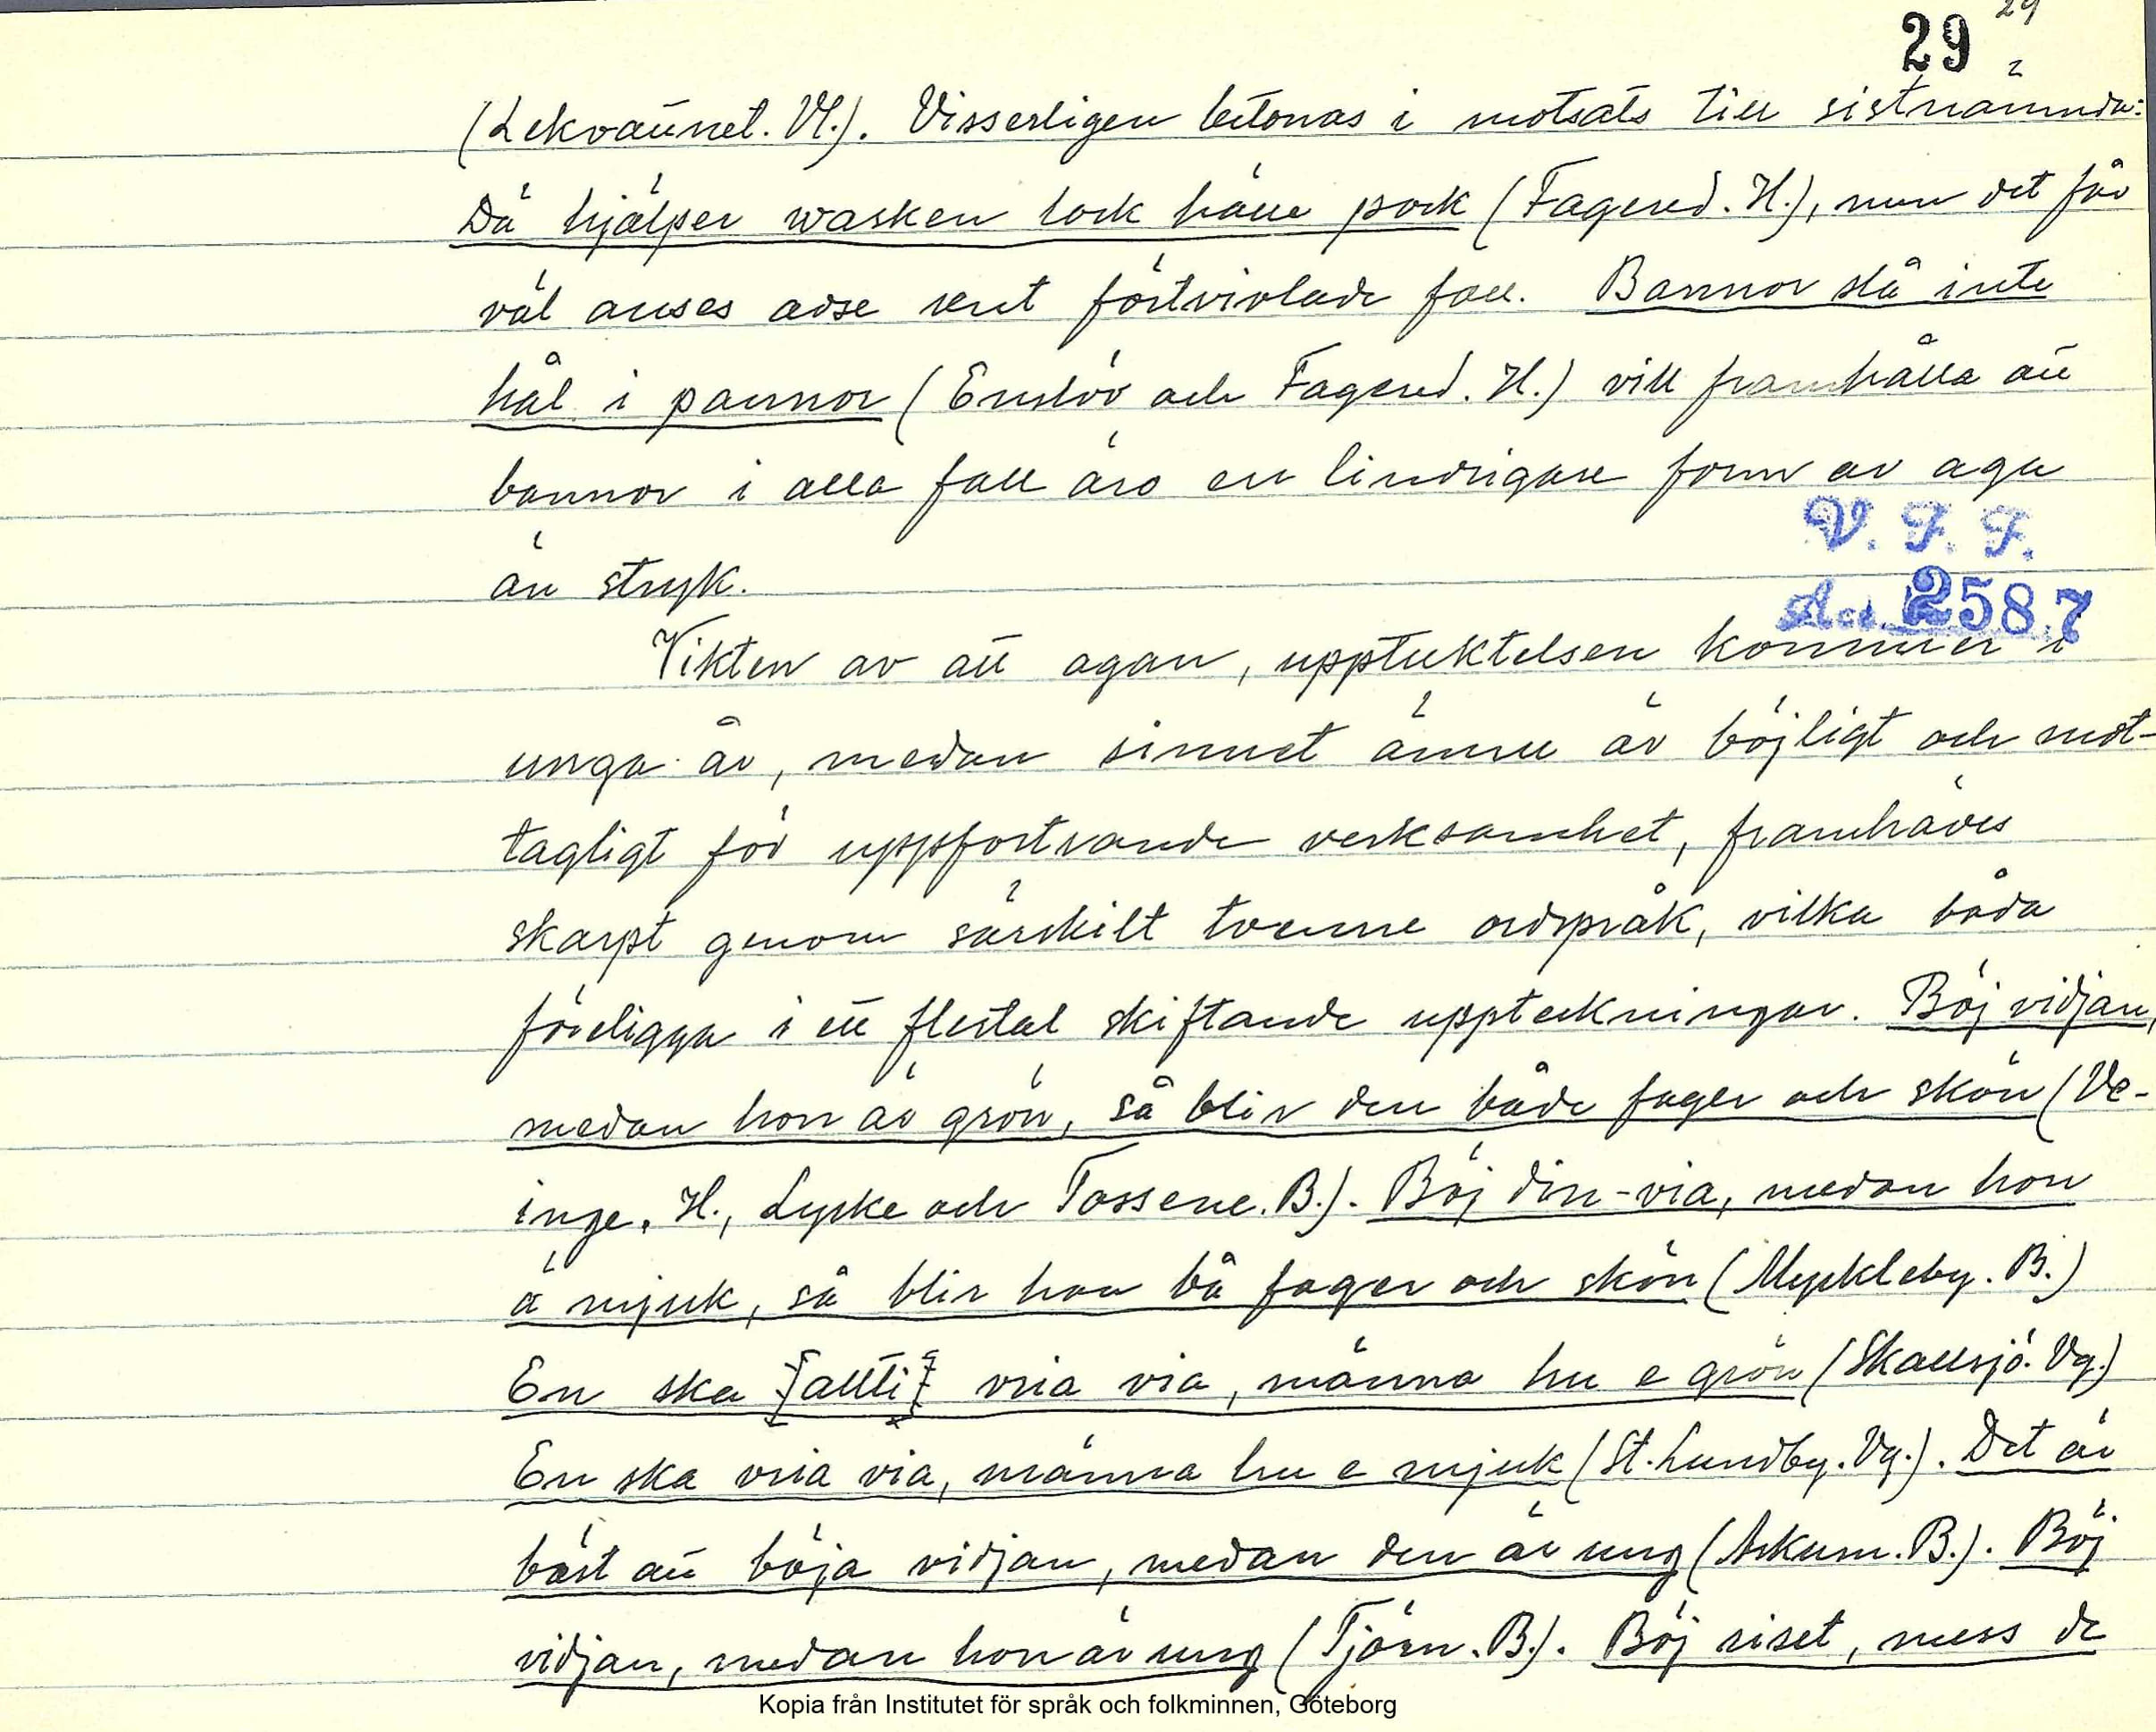 29
29
2
(Lekvattnet. Vl.). Visserligen betonas i motsats till sistnämnda:
Då hjälper wasken lock hälle pock (Fagered. H.), men det får
väl anses avse rent förtvivlade fall. Bannor slå inte
hål i pannor (Enslöv och Fagered. H.) vill framhålla att
bannor i alla fall äro en lindrigare form av aga
än stryk.
V. F. F.
Acc. 2587
Vikten av att agan, upptuktelsen kommer i
unga år, medan sinnet ännu är böjligt och mot-
tagligt för uppfostrande verksamhet, framhäves
skarpt genom särskilt tvenne ordspråk, vilka båda
föreligga i ett flertal skiftande uppteckningar. Böj vidjan,
medan hon är grön, så blir den både fager och skön (Ve-
inge. H., Lyske och Tossene. B.). Böj din-via, medan hon
ä mjuk, så blir hon bå fager och skön (Myckleby. B.)
En ska {allti} vria via, männa hu e grön (Skallsjö. Vg.)
En ska vria via, männa hu e mjuk (St. Lundby. Vg.). Det är
bäst att böja vidjan, medan den är ung (Askum. B.). Böj
vidjan, medan hon är ung (Tjörn. B.). Böj riset, mess de
Kopia från Institutet för språk och folkminnen, Göteborg